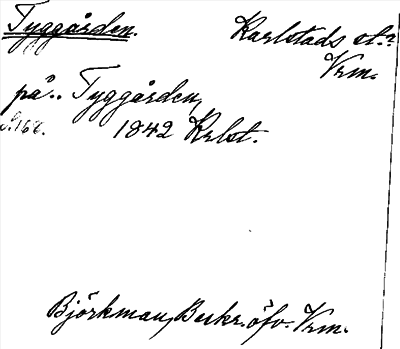 Tyggården. Karlstads st.
Vrm.
på.. Tyggården,
S.168. 1842 Krlst.
Björkman, Beskr. öfv. Vrm.